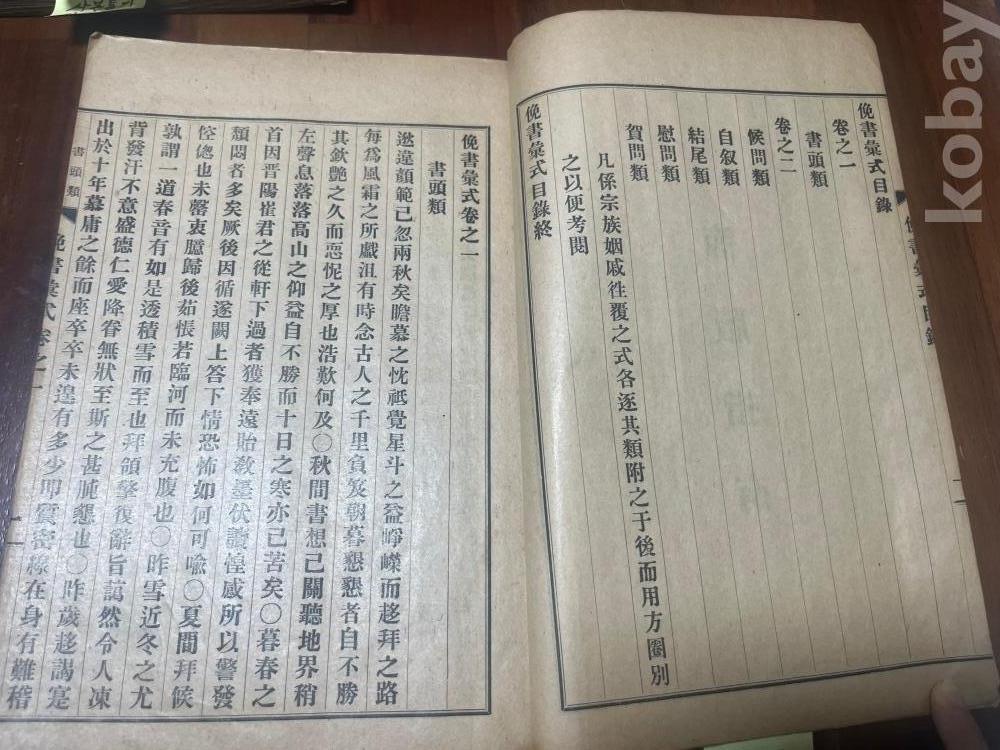 俛書彙式目錄
卷之一
書頭類
卷之二
候問類
自叙類
結尾類
慰問類
賀問類
凡係宗族姻戚徃覆之式各逐其類附之于後而用方圈別
之以便考閱
俛書彙式目錄終
俛書彙式卷之一
書頭類
逖違顏範已忽兩秋矣瞻慕之忱祗覺星斗之益崢嶸而趍拜之路
每爲風霜之所戲沮有時念古人之千里負笈朝暮懇懇者自不勝
其欽艶之久而恧怩之厚也浩歎何及○秋間書想已關聽地界稍
左聲息落落高山之仰益自不勝而十日之寒亦已苦矣○暮春之
首因晋陽崔君之從軒下過者獲奉遠貽敎墨伏讀惶感所以警發
類悶者多矣厥後因循遂闕上答下情恐怖如何可喩○夏間拜候
倥偬也未罄衷臆歸後茹悵若臨河而未充腹也○昨雪近冬之尤
孰謂一道春音有如是透積雪而至也拜領擎復辭旨藹然令人凍
背發汗不意盛德仁愛降眷無狀至斯之甚肫懇也○昨歲趍謁寔
出於十年慕庸之餘而座卒卒未遑有多少即震密緣在身有難稽
書頭類
俛書彙式卷之一
俛書彙式目錄
kobay